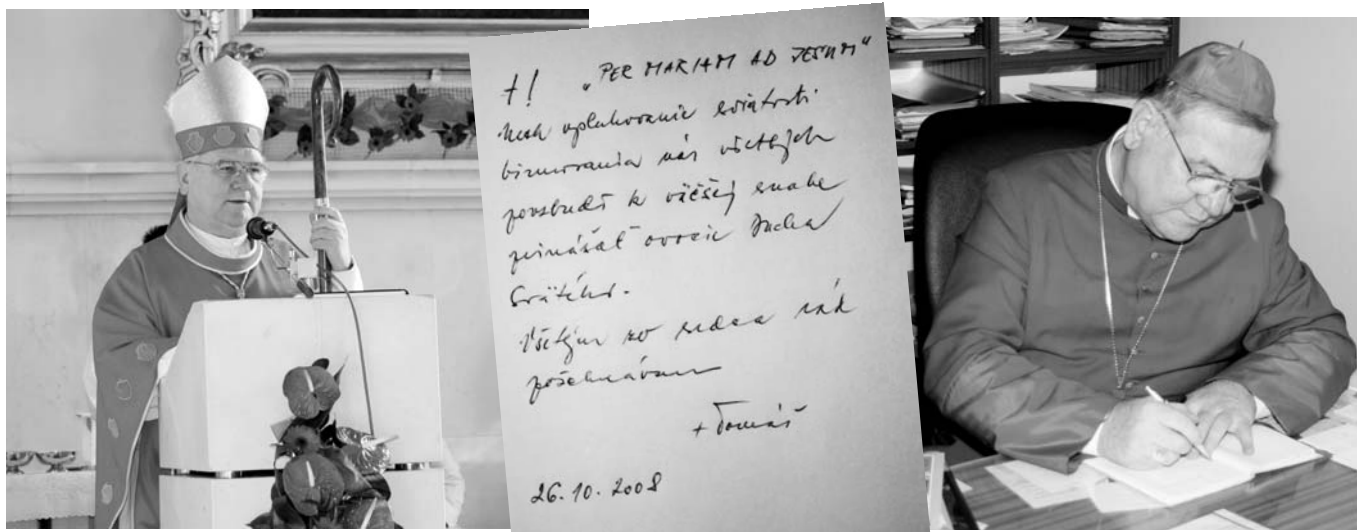 +! „PER MARIAM AD JESUM“
Nech vysluhovanie sviatosti
birmovania nás všetkých
povzbudí k väčšej snahe
prinášať ovocie Ducha
Svätého.
Všetkým zo srdca rád
požehnávam
+ Tomáš
26.10.2008